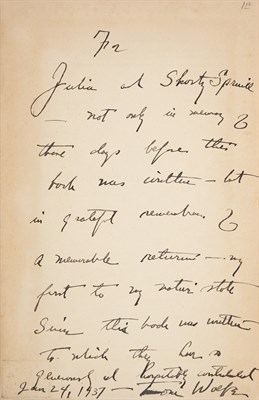 For
Julia and Shorty Spruill
— not only in memory of
those days before this
book was written — but
in grateful remembrance of
a memorable return — my
first to my native state
Since this book was written
to which they have so
generously and hospitably contributed
Jan 24, 1937 — Tom Wolfe